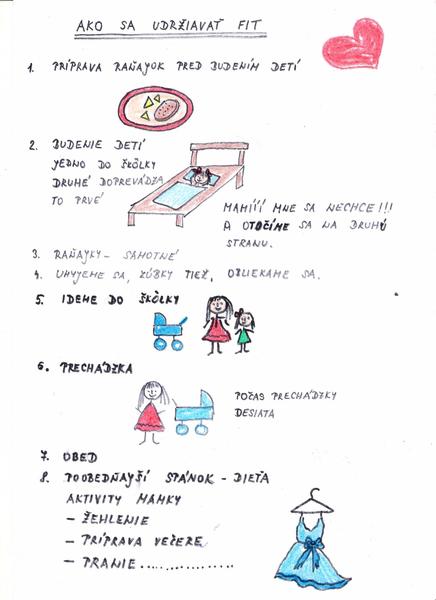 AKO SA UDRŽIAVAŤ FIT
1. PRÍPRAVA RAŇAJOK PRED BUDENÍM DETÍ
2. BUDENIE DETÍ
JEDNO DO ŠKÔLKY
DRUHÉ DOPREVÁDZA
TO PRVÉ
MAMÍÍÍ MNE SA NECHCE!!!
A OTOČÍME SA NA DRUHÚ
STRANU.
3. RAŇAJKY - SAMOTNÉ
4. UMYJEME SA, ZÚBKY TIEŽ, OBLIEKAME SA.
5. IDEME DO ŠKÔLKY
6. PRECHÁDZKA
POČAS PRECHÁDZKY
DESIATA
7. OBED
8. POOBEDŇAJŠÍ SPÁNOK - DIEŤA
AKTIVITY MAMKY
- ŽEHLENIE
- PRÍPRAVA VEČERE
- PRANIE...............